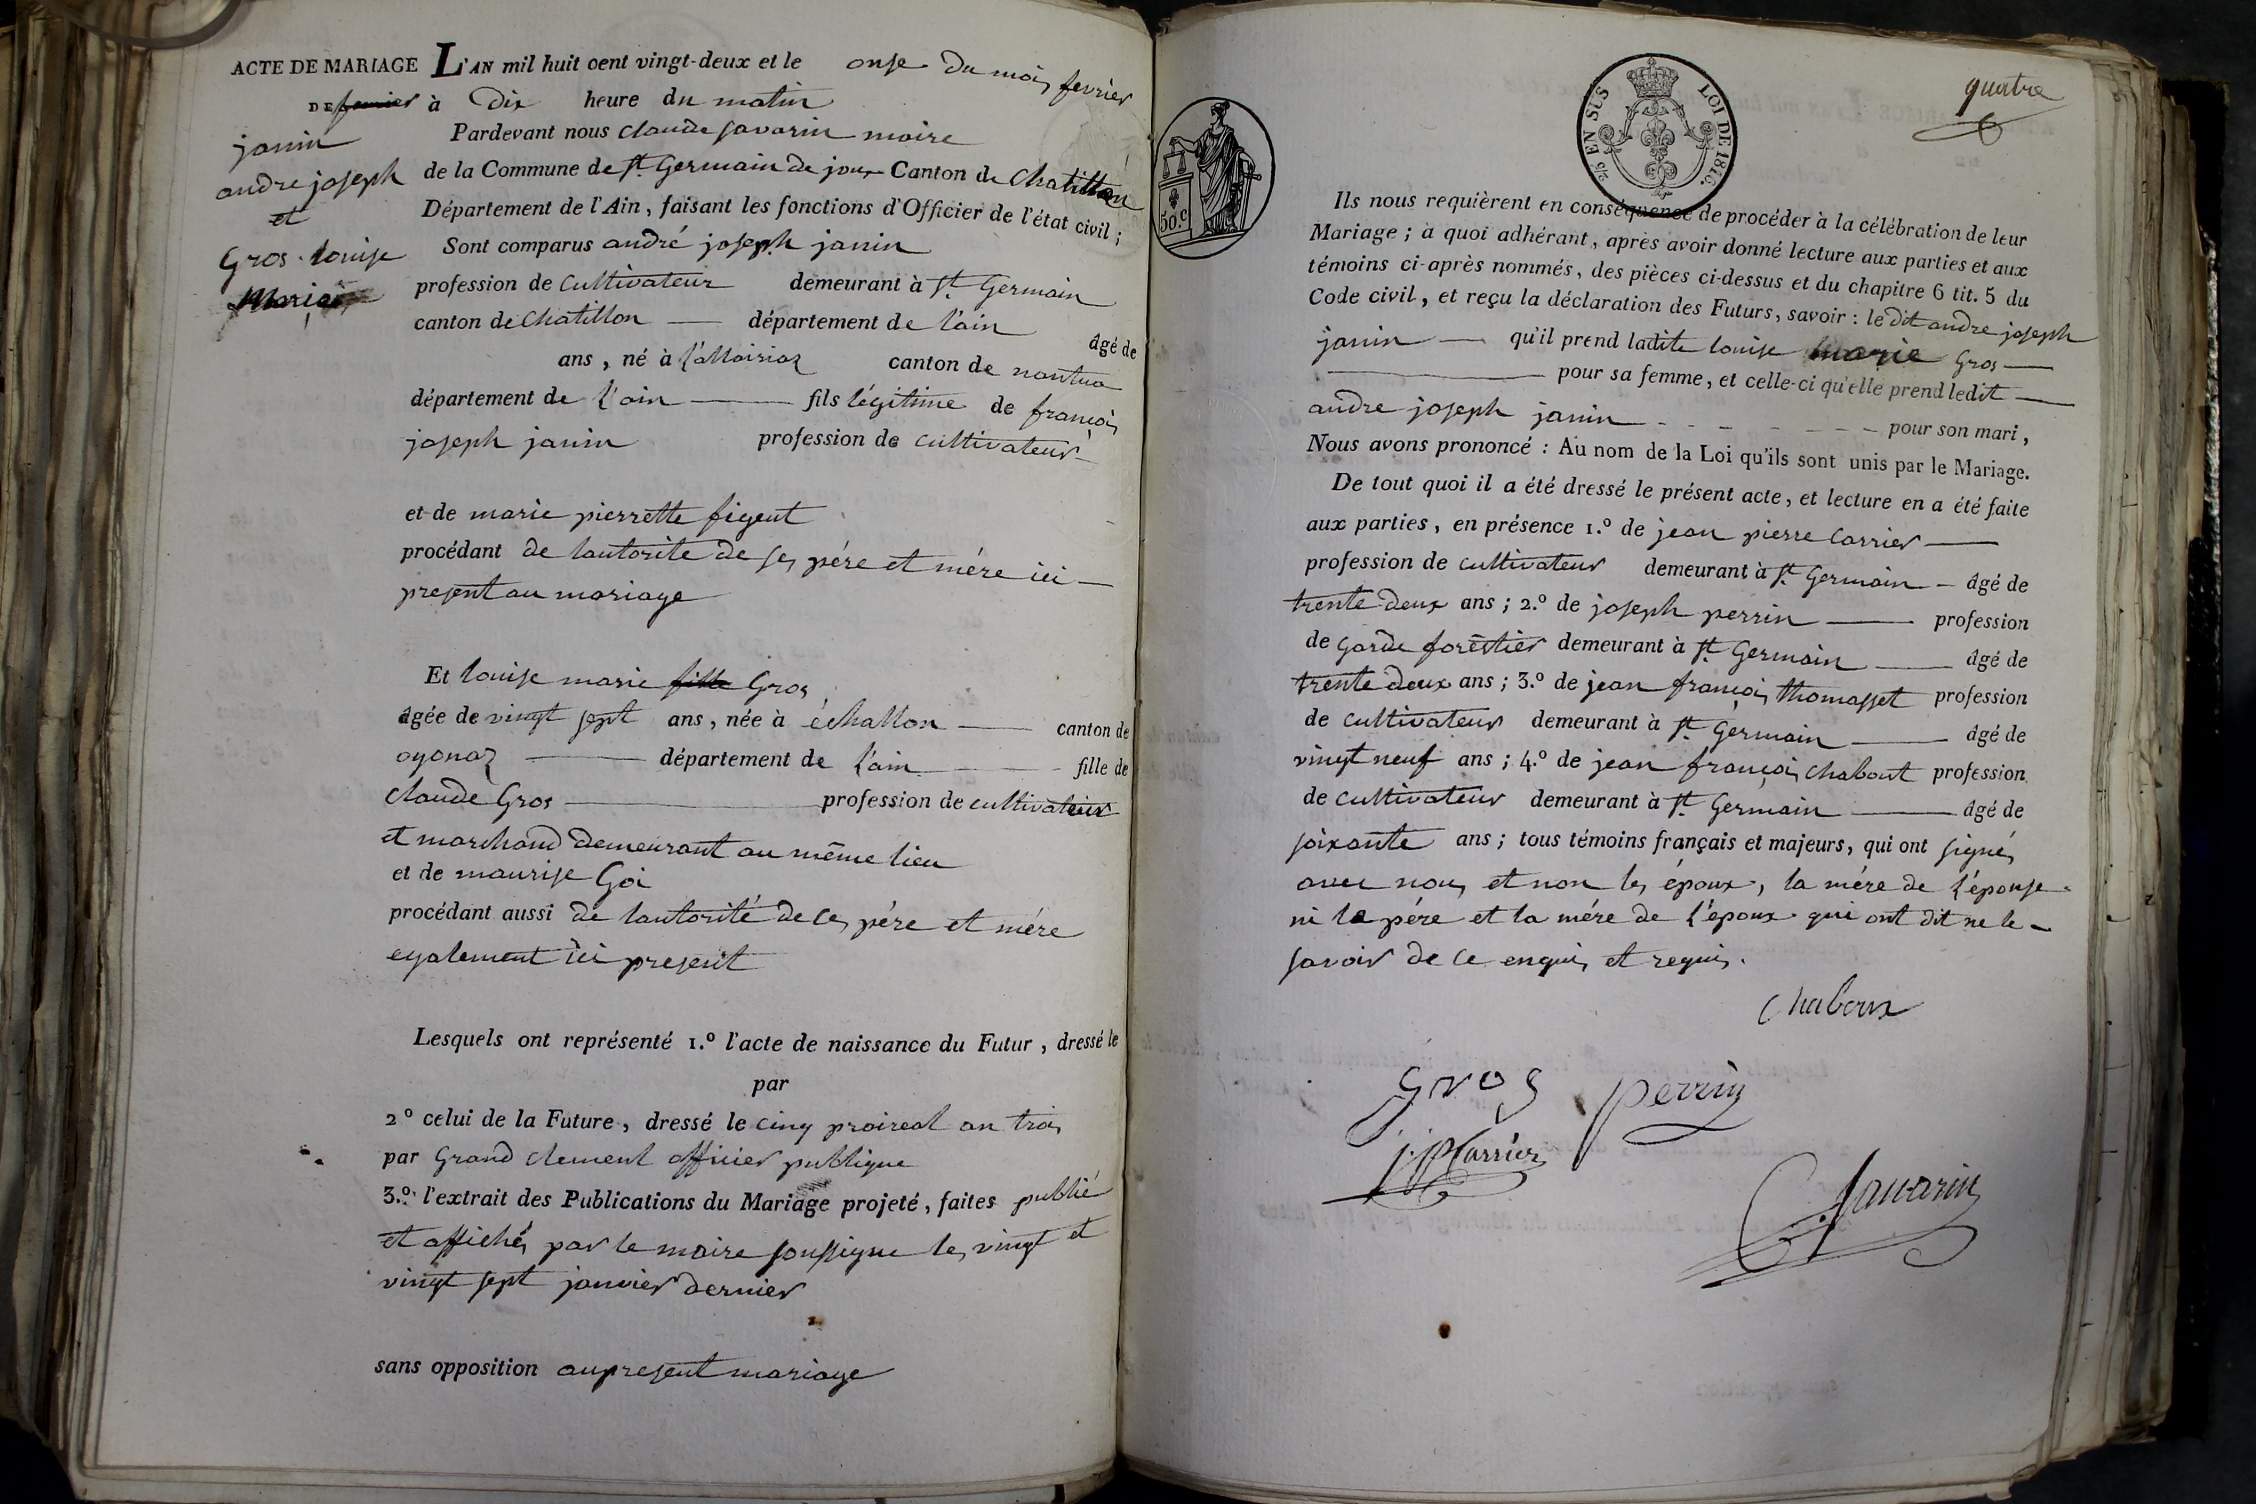 ACTE DE MARIAGE L'AN mil huit cent vingt-deux et le onse du mois fevrier
DE à dix heure du matin
janin
andre joseph
et
Gros louise
Marie
Pardevant nous claude savarin maire
de la Commune de St. Germain de joux Canton de Chatillon
Département de l'Ain, faisant les fonctions d'Officier de l'état civil;
Sont comparus andré joseph janin
profession de Cultivateur demeurant à St. Germain
canton de Chatillon département de l'ain âgé de
ans, né à canton de nantua
département de l'ain fils légitime de françois
joseph janin profession de cultivateur
et de marie pierrette figent
procédant de lautorite de ses pére et mére ici
present au mariage
Et louise marie fille Gros
âgée de vingt sept ans, née à échallon canton de
oyonaz département de l'ain fille de
Claude Gros profession de cultivateur
et marchand demeurant au même lieu
et de maurise Goi
procédant aussi de lautorité de ces pére et mére
egalement ici present
Lesquels ont représenté 1.º l'acte de naissance du Futur, dressé le
par
2º celui de la Future, dressé le cinq praireal an trois
par Grand clement officier publique
3.º l'extrait des Publications du Mariage projeté, faites publié
et affichés par le maire soussigne les vingt et
vingt sept janvier dernier
sans opposition au present mariage
50.c
2/5 EN SUS LOI DE 1816.
quatre
Ils nous requièrent en conséquence de procéder à la célébration de leur
Mariage; à quoi adhérant, après avoir donné lecture aux parties et aux
témoins ci-après nommés, des pièces ci-dessus et du chapitre 6 tit. 5 du
Code civil, et reçu la déclaration des Futurs, savoir: le dit andre joseph
janin qu'il prend ladite louise marie Gros
pour sa femme, et celle-ci qu'elle prend ledit
andre joseph janin pour son mari,
Nous avons prononcé: Au nom de la Loi qu'ils sont unis par le Mariage.
De tout quoi il a été dressé le présent acte, et lecture en a été faite
aux parties, en présence 1.º de jean pierre Carrier
profession de cultivateur demeurant à St. Germain âgé de
trente deux ans; 2.º de joseph perrin profession
de garde forêstier demeurant à St. Germain âgé de
trente deux ans; 3.º de jean françois thomasset profession
de cultivateur demeurant à St. Germain âgé de
vingt neuf ans; 4.º de jean françois chabout profession
de cultivateur demeurant à St. Germain âgé de
soixante ans; tous témoins français et majeurs, qui ont signés
avec nous et non les époux, la mére de l'épouse
ni le pére et la mére de l'epoux qui ont dit ne le
savoir de ce enquis et requis.
Chaboux
Gros perrin
j. p Carrier
C. Savarin